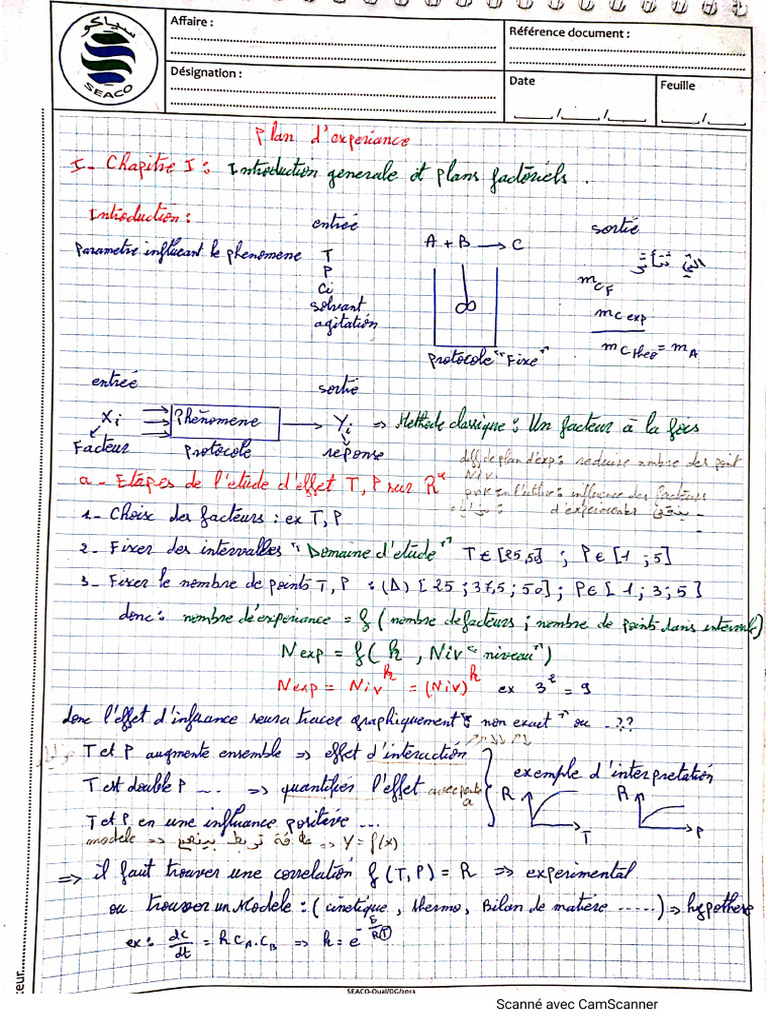 سياكو
SEACO
Affaire :
Référence document :
Désignation :
Date
Feuille
Plan d'experiance
I- Chapitre I : Introduction generale et plans factoriels .
Introduction :
entrée
sortie
Parametre influcant le phenomene
T
P
Ci
solvant
agitation
A + B → C
Protocole "Fixe"
التي تتأثر
mCF
mC exp
mC theo = mA
entrée
sortie
Xi
Phenomene
Yi
⇒ Methode classique : Un facteur à la fois
Facteur
Protocole
reponse
diff de plan d'exp : reduire nmbre des point
Niv
influence des facteurs
d'experiences
a - Etapes de l'etude d'effet T, P sur R
1 - Choix des facteurs : ex T, P
2 - Fixer des intervalles "Domaine d'etude" T ∈ [25,50] ; P ∈ [1 ; 5]
3 - Fixer le nombre de points T, P : (Δ) [25 ; 37,5 ; 50] ; P ∈ [1 ; 3 ; 5]
donc : nombre d'experiance = f ( nombre de facteurs ; nombre de points dans intervale)
Nexp = f( k , Niv "niveau")
Nexp = Niv^k = (Niv)^k ex 3² = 9
donc l'effet d'infuance seura tracer graphiquement "non exact" ou ...??
T et P augmente ensemble ⇒ effet d'interaction
T est double P .... ⇒ quantifier l'effet
T et P en une influance positive ...
exemple d'interpretation
R
T
R
P
modele ⇒ علاقة تربط بينهم ⇒ Y = f(x)
⇒ il faut trouver une correlation f (T, P) = R ⇒ experimental
ou trouver un Modele : ( cinetique , thermo, Bilan de matière .....) ⇒ hypothese
ex : dc/dt = k CA . CB ⇒ k = e^-E/RT
SEACO-Qual/DG/2013
Scanné avec CamScanner